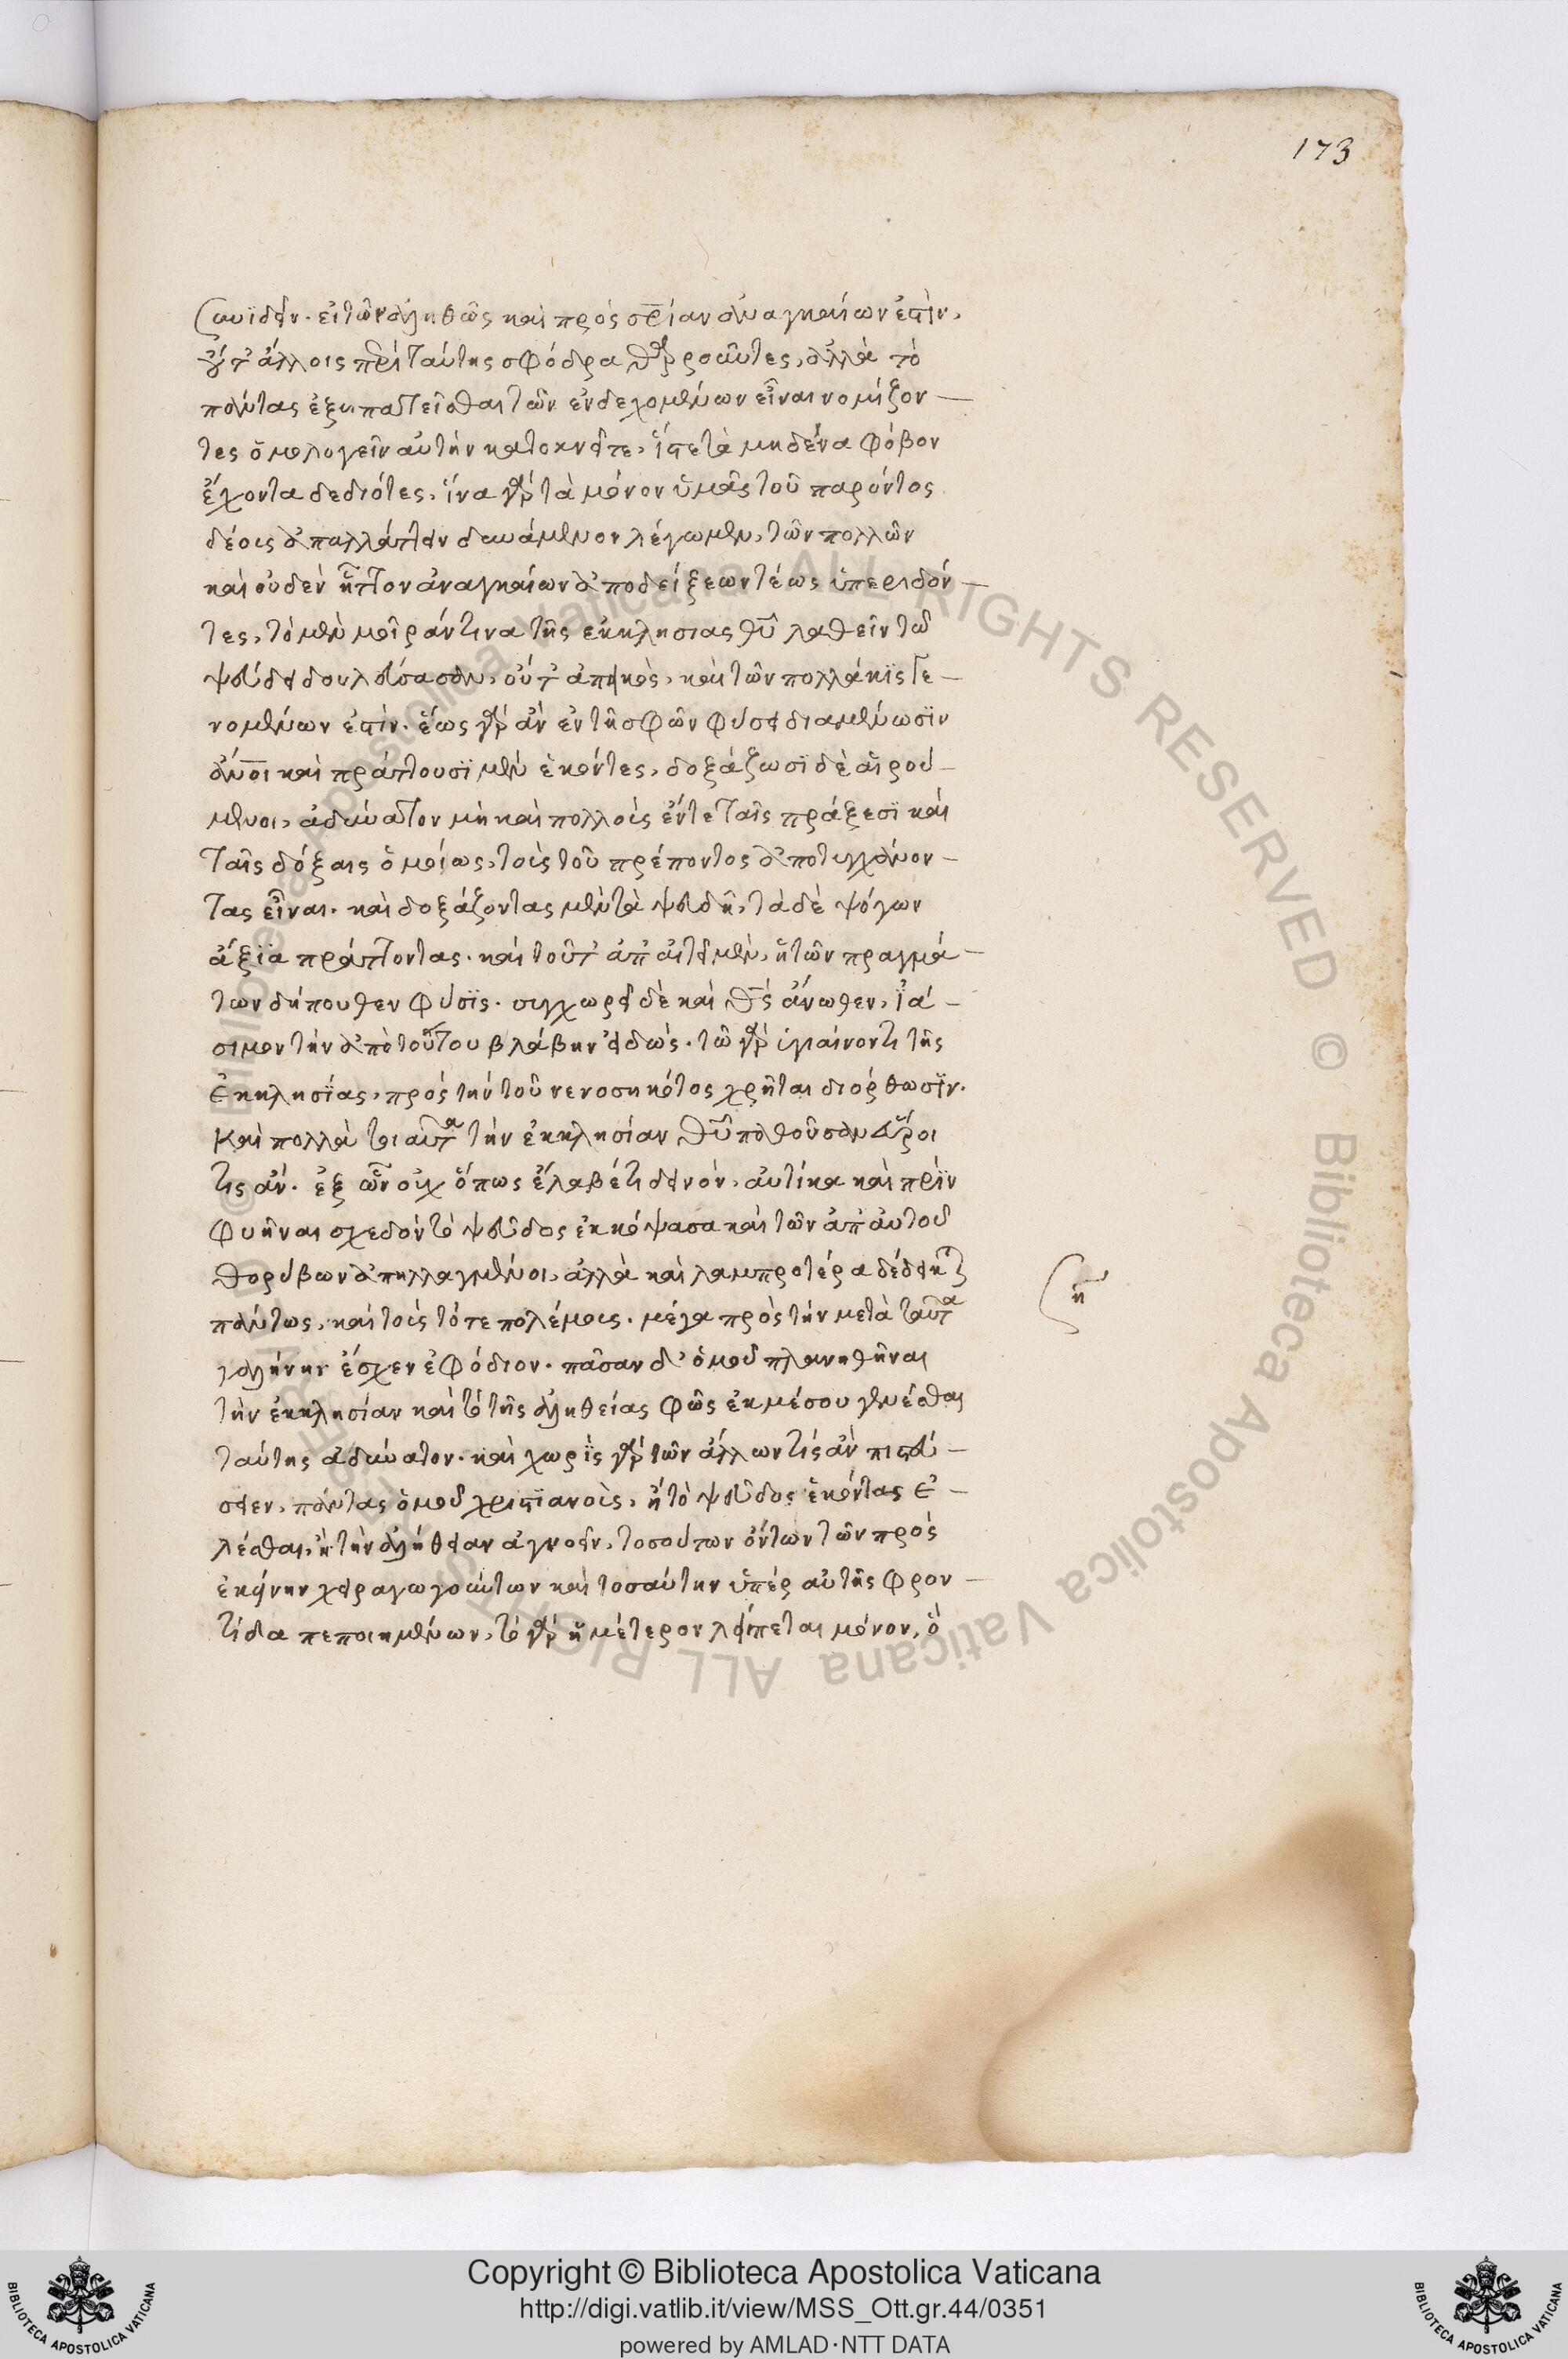 173
συνιδεῖν. εἰ τῶν ἀληθῶς καὶ πρὸς σρίαν ἀναγκαίων ἐστὶν,
οὔτ' ἄλλοις περὶ ταύτης σφόδρα θαρροῦντες, ἀλλὰ τὸ
πάντας ἐξηπατεῖσθαι τῶν ἐνδεχομένων εἶναι νομίζον-
τες ὁμολογεῖν αὐτὴν κατοκνεῖτε, ἔστε τὰ μηδένα φόβον
ἔχοντα δεδιότες. ἵνα γὰρ τὰ μόνον ὑμᾶς τοῦ παρόντος
δέους ἀπαλλάττειν δυνάμενον λέγωμεν, τῶν πολλῶν
καὶ οὐδὲν ἧττον ἀναγκαίων ἀποδείξεων τέως ὑπεριδόν-
τες, τὸ μὲν μοῖράν τινα τῆς εκκλησιας θῦ λαθεῖν τῶ
ψεύδει δουλεύσασαν, οὔτ' ἀπεικὸς, καὶ τῶν πολλάκις γε-
νομένων ἐστίν. ἕως γὰρ ἂν ἐν τῆ σφῶν φύσει διαμένωσιν
ἄνοι καὶ πράττουσι μὲν ἑκόντες, δοξάζωσι δὲ αἱρού-
μενοι, ἀδύνατον μὴ καὶ πολλοὺς ἔν τε ταῖς πράξεσι καὶ
ταῖς δόξαις ὁμοίως, τοὺς τοῦ πρέποντος ἀποτυγχάνον-
τας εἶναι. καὶ δοξάζοντας μὲν τὰ ψευδῆ, τὰ δὲ ψόγων
ἄξια πράττοντας. καὶ τοῦτ' ἀπαιτεῖ μὲν, ἡ τῶν πραγμά-
των δήπουθεν φύσις. συγχωρεῖ δὲ καὶ θς ἄνωθεν, ἰά-
σιμον τὴν ἀπὸ τούτου βλάβην εἰδώς. τῶ γὰρ ὑγιαίνοντι τῆς
Ἐκκλησίας, πρὸς τὴν τοῦ νενοσηκότος χρῆται διόρθωσιν.
Καὶ πολλὰ τοιαῦτα τὴν ἐκκλησίαν θῦ παθοῦσαν εὕροι
τις ἄν. ἐξ ὧν οὐχ ὅπως ἔλαβέ τι δεινὸν, αὐτίκα καὶ πρὶν
φυῆναι σχεδὸν τὸ ψεῦδος ἐκκόψασα καὶ τῶν ἀπ' αὐτοῦ
θορύβων ἀπηλλαγμένοι, ἀλλὰ καὶ λαμπροτέρα δέδεικται
πάντως, καὶ τοὺς τότε πολέμους. μέγα πρὸς τὴν μετὰ ταῦτα
γαλήνην ἔσχεν ἐφόδιον. πᾶσαν δ' ὁμοῦ πλανηθῆναι
τὴν ἐκκλησίαν καὶ τὸ τῆς ἀληθείας φῶς ἐκ μέσου γενέσθαι
ταύτης ἀδύνατον. καὶ χωρὶς γὰρ τῶν ἄλλων τίς ἂν πιστεύ-
σειεν, πάντας ὁμοῦ χριστιανοὺς, ἢ τὸ ψεῦδος ἑκόντας ἑ-
λέσθαι, ἢ τὴν ἀλήθειαν ἀγνοεῖν, τοσούτων ὄντων τῶν πρὸς
ἐκείνην χειραγωγούντων καὶ τοσαύτην ὑπὲρ αὐτῆς φρον-
τίδα πεποιημένων, τὸ γὰρ ἡμέτερον λείπεται μόνον, ὃ
Copyright © Biblioteca Apostolica Vaticana
http://digi.vatlib.it/view/MSS_Ott.gr.44/0351
powered by AMLAD·NTT DATA
BIBLIOTECA APOSTOLICA VATICANA
BIBLIOTECA APOSTOLICA VATICANA
© Biblioteca Apostolica Vaticana ALL RIGHTS RESERVED © Biblioteca Apostolica Vaticana ALL RIGHTS RESERVED